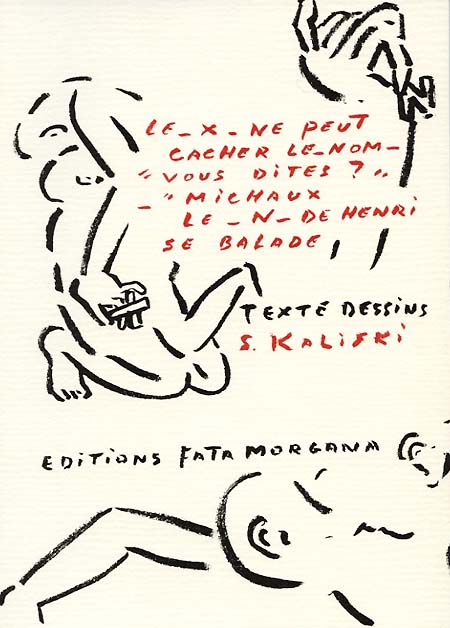 LE_X_NE PEUT
CACHER LE_NOM_
"VOUS DITES ? "
_"MICHAUX
LE_N_DE HENRI
SE BALADE
TEXTE DESSINS
S. KALISKI
EDITIONS FATA MORGANA